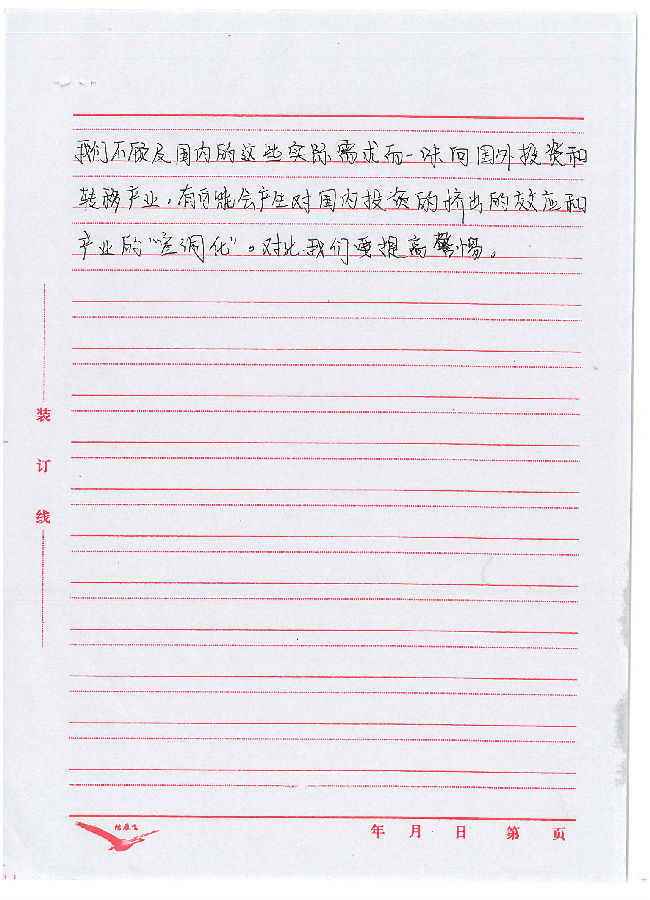 我们不顾及国内的这些实际需求而一味向国外投资和
转移产业,有可能会产生对国内投资的挤出的效应和
产业的“空洞化”。对此我们要提高警惕。
装
订
线
年 月 日 第 页